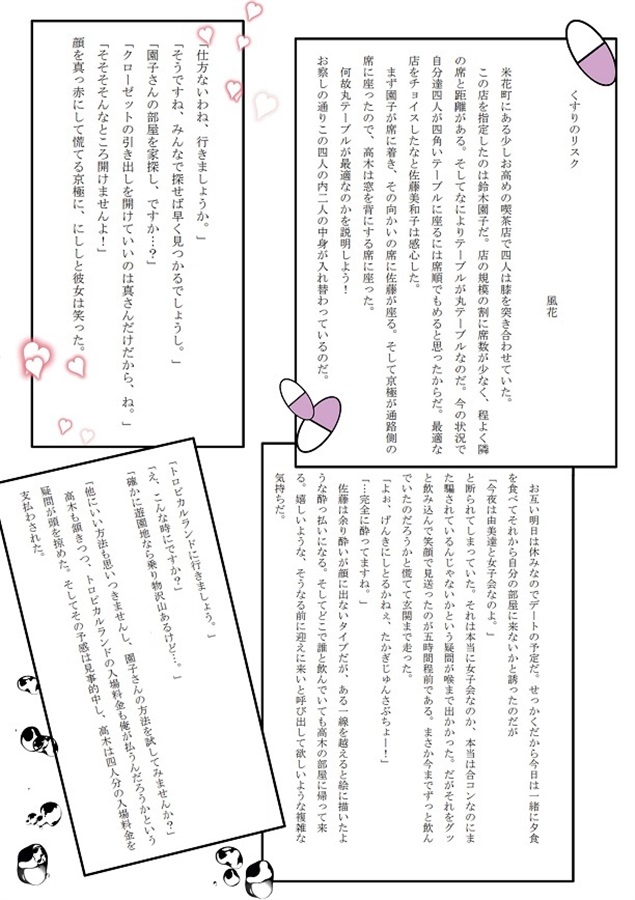 くすりのリスク
風花
米花町にある少しお高めの喫茶店で四人は膝を突き合わせていた。
この店を指定したのは鈴木園子だ。店の規模の割に席数が少なく、程よく隣
の席と距離がある。そしてなによりテーブルが丸テーブルなのだ。今の状況で
自分達四人が四角いテーブルに座るには席順でもめると思ったからだ。最適な
店をチョイスしたなと佐藤美和子は感心した。
まず園子が席に着き、その向かいの席に佐藤が座る。そして京極が通路側の
席に座ったので、高木は窓を背にする席に座った。
何故丸テーブルが最適なのかを説明しよう！
お察しの通りこの四人の内二人の中身が入れ替わっているのだ。
「仕方ないわね、行きましょうか。」
「そうですね、みんなで探せば早く見つかるでしょうし。」
「園子さんの部屋を家探し、ですか…？」
「クローゼットの引き出しを開けていいのは真さんだけだから、ね。」
「そそそそんなところ開けませんよ！」
顔を真っ赤にして慌てる京極に、にししと彼女は笑った。
お互い明日は休みなのでデートの予定だ。せっかくだから今日は一緒に夕食
を食べてそれから自分の部屋に来ないかと誘ったのだが
「今夜は由美達と女子会なのよ。」
と断られてしまっていた。それは本当に女子会なのか、本当は合コンなのにま
た騙されているんじゃないかという疑問が喉まで出かかった。だがそれをグッ
と飲み込んで笑顔で見送ったのが五時間程前である。まさか今までずっと飲ん
でいたのだろうかと慌てて玄関まで走った。
「よぉ、げんきにしとるかねぇ、たかぎじゅんさぶちょー！」
「…完全に酔ってますね。」
佐藤は余り酔いが顔に出ないタイプだが、ある一線を越えると絵に描いたよ
うな酔っ払いになる。そしてどこで誰と飲んでいても高木の部屋に帰って来
る。嬉しいような、そうなる前に迎えに来いと呼び出して欲しいような複雑な
気持ちだ。
「トロピカルランドに行きましょう。」
「え、こんな時にですか？」
「確かに遊園地なら乗り物沢山あるけど…。」
「他にいい方法も思いつきませんし、園子さんの方法を試してみませんか？」
高木も頷きつつ、トロピカルランドの入場料金も俺が払うんだろうかという
疑問が頭を掠めた。そしてその予感は見事的中し、高木は四人分の入場料金を
支払わされた。